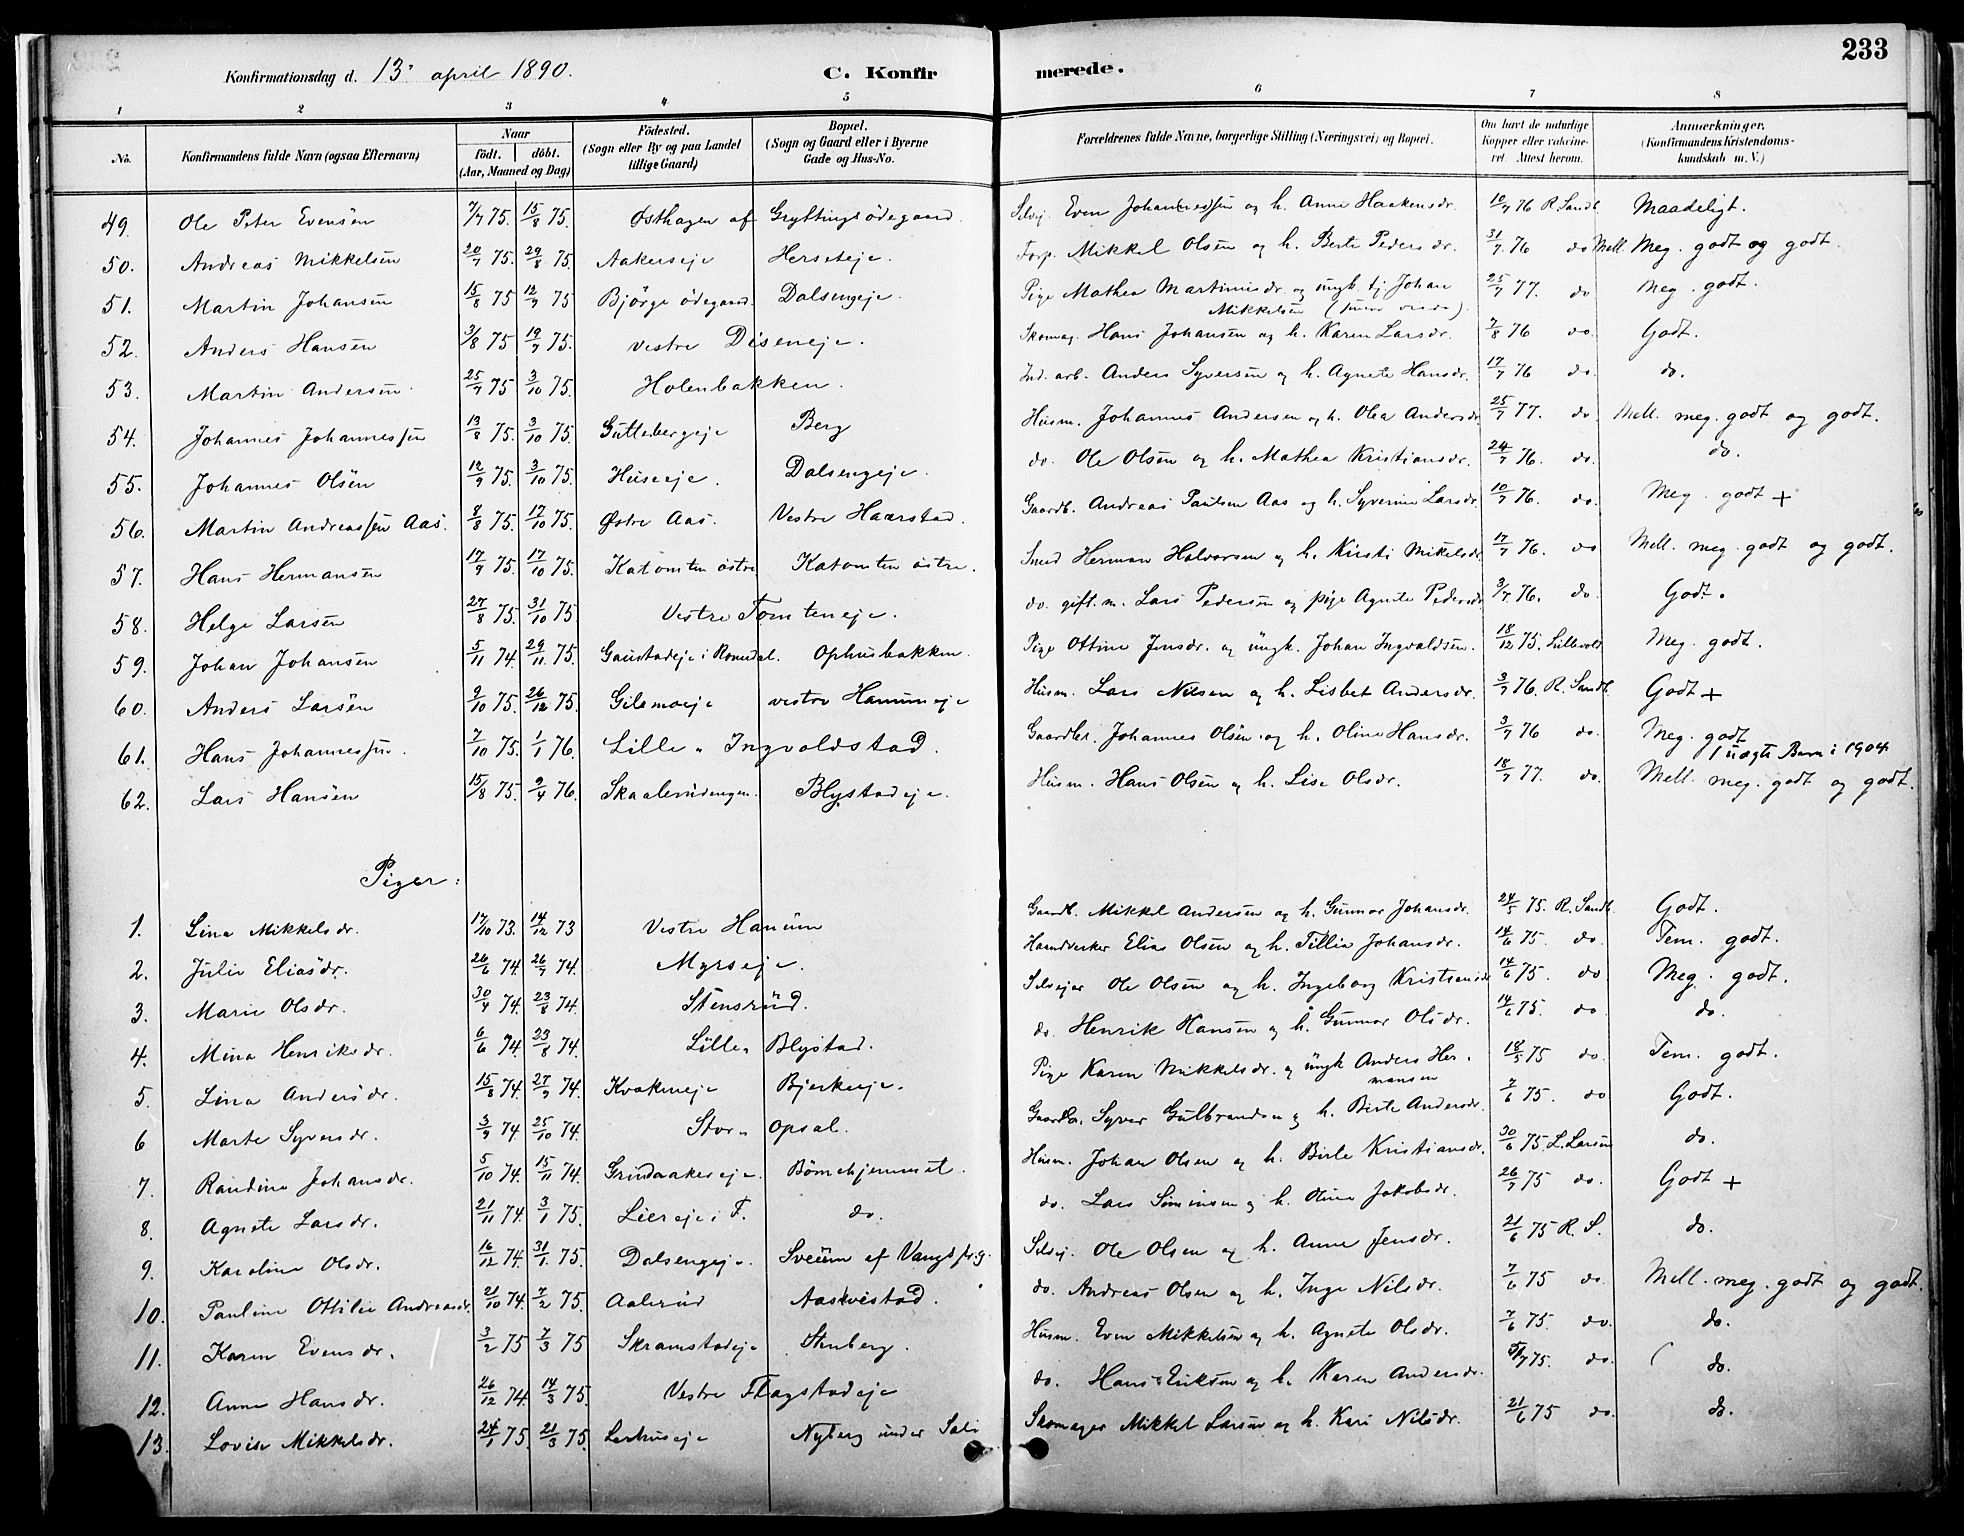 233
Konfirmationsdag d. 13de april 1890. C. Konfirmerede.
1 2 3 4 5 6 7 8
No. Konfirmandens fulde Navn (ogsaa Efternavn) Naar født. døbt. (Aar, Maaned og Dag) Fødested. (Sogn eller By og paa Landet tillige Gaard) Bopæl. (Sogn og Gaard eller i Byerne Gade og Hus-No. Forældrenes fulde Navne, borgerlige Stilling (Næringsvei) og Bopæl. Om havt de naturlige Kopper eller vakcineret. Attest herom. Anmerkninger. (Konfirmandens Kristendomskundskab m. V.)
49. Ole Peter Evensen 7/7 75. 15/8 75. Østhagen af Gryttingsødegaard. Selvej. Even Johannessen og h. Anne Haakensdr. 10/7 76 R. Sandb. Maadeligt.
50. Andreas Mikkelsen 20/7 75. 29/8 75. Aakerseje Herseteje. Forp. Mikkel Olsen og h. Berte Pedersdr. 31/7 76 do Mell. Meg. godt og godt.
51. Martin Johansen 15/8 75 12/9 75 Bjørge ødegaard. Dalsengeje. Pige Mathea Martinusdr. og ungk. tj. Johan Mikkelsen 25/7 77. do Meg. godt.
52. Anders Hansen 31/8 75 19/9 75. vestre Diseneje. Skomag. Hans Johansen og h. Karen Larsdr. 7/8 76 do. Godt.
53. Martin Andersen 25/9 75 3/10 75. Holenbakken. Ind. arb. Anders Syversen og h. Agnete Hansdr. 17/7 76 do. do.
54. Johannes Johannessen 13/8 75. 3/10 75. Guttebergeje Berg Husm. Johannes Andersen og h. Olea Andersdr 25/7 77. do Mell. meg. godt og godt.
55. Johannes Olsen 12/9 75. 3/10 75. Huseeje. Dalsengeje. do. Ole Olsen og h. Mathea Kristiansdr. 24/7 76. do. do.
56. Martin Andreassen Aas. 8/8 75. 17/10 75. Østre Aas. Vestre Haarstad. Gaardb. Andreas Paulsen Aas og h. Syverine Larsdr. 10/7 76. do. Meg. godt +
57. Hans Hermansen 17/9 75. 17/10 75. Katomten østre Katomten østre. Smed Herman Halvorsen og h. Kirsti Mikelsdr. 17/7 76. do Mell. meg. godt og godt.
58. Helge Larsen 27/8 75. 31/10 75. Vestre Tomteneje. do. gift. m. Lars Pedersen og pige Agnete Pedersdr 3/7 76. do. Godt.
59. Johan Johansen 5/11 74. 29/11 75. Gaustadeje i Romedal. Ophusbakken. Pige Ottine Jensdr. og ungk. Johan Ingvaldsen. 18/12 75. Lillevold Meg. godt.
60. Anders Larsen 9/10 75. 26/12 75. Gilemoeje vestre Hanumeje Husm. Lars Nilsen og h. Lisbet Andersdr. 3/7 76. R. Sandb. Godt +
61. Hans Johannessen. 7/10 75. 1/1 76. Lille-Ingvoldstad. Gaardbr. Johannes Olsen og h. Oline Hansdr. 3/7 76 do. Meg. godt
1 uægte Barn i 1904
62. Lars Hansen 15/8 75. 9/4 76. Skaalerudengen. Blystadeje. Husm. Hans Olsen og h. Lise Olsdr. 18/7 77. do. Mell. meg. godt og godt.
Piger:
1. Lina Mikkelsdr. 17/10 73. 14/12 73 Vestre Hanum Gaardb. Mikkel Andersen og h. Gunnor Johansdr. 24/5 75. R. Sandb. Godt.
2. Julie Eliasdr. 26/6 74. 26/7 74. Myrseje. Haandverker Elias Olsen og h. Tillie Johansdr. 14/6 75. do. Tem. godt.
3. Marie Olsdr. 30/4 74. 23/8 74. Stensrud. Selvejer Ole Olsen og h. Ingeborg Kristiansdr 14/6 75. do Meg. godt.
4. Mina Henriksdr. 6/6 74. 23/8 74. Lille-Blystad. do. Henrik Hansen og h. Gunnor Olsdr. 14/6 75. do do.
5. Lina Andersdr. 15/8 74. 27/9 74. Kvakeneje Bjerkeeje. Pige Karen Mikkelsdr. og ungk Anders Hermansen 18/5 75 do. Tem. godt.
6 Marte Syversdr. 3/9 74. 25/10 74. Stor-Opsal. Gaardbr. Syver Gulbrandsen og h. Birte Andersdr 7/6 75. do Godt.
7. Randine Johansdr. 5/10 74. 15/11 74. Grindaakereje. Børnehjemmet. Husm. Johan Olsen og h. Birte Kristiansdr. 30/6 75. L. Larsen do.
8. Agnete Larsdr. 21/11 74. 3/1 75. Liereje i F. do. do. Lars Simensen og h. Oline Jakobsdr. 26/7 75 do. Godt +
9. Karoline Olsdr. 16/12 74. 31/1 75. Dalsengeje. Sveum af Vangs prg. Selvej. Ole Olsen og h. Anne Jensdr. 21/6 75 R. S. do.
10. Pauline Ottilie Andreasdr. 21/10 74. 7/2 75. Aalerud Aaskvestad. do. Andreas Olsen og h. Inge Nilsdr. 7/6 75 do. Mell. meg. godt og godt.
11. Karen Evensdr. 3/2 75 7/3 75 Skramstadeje Stenberg. Husm. Even Mikkelsen og h. Agnete Olsdr. 7/6 75. do. do.
12. Anne Hansdr. 26/12 74. 14/3 75. Vestre Flagstadeje do. Hans Eriksen og h. Karen Andersdr. 75. do. do.
13. Lovise Mikkelsdr. 24/1 75. 21/3 75. Lerhuseje Nyberg under Sæli Skomager Mikkel Larsen og h. Kari Nilsdr. 21/6 75 do. do.